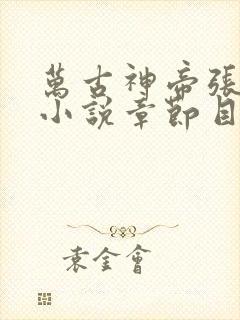 萬古神帝張
小説章節目
袁金會